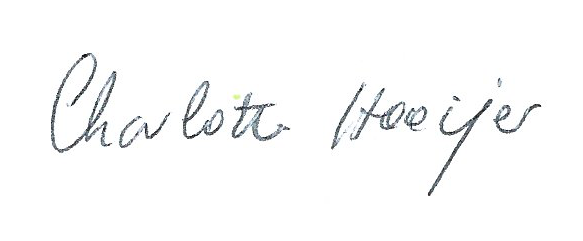 Charlotte Hooijer